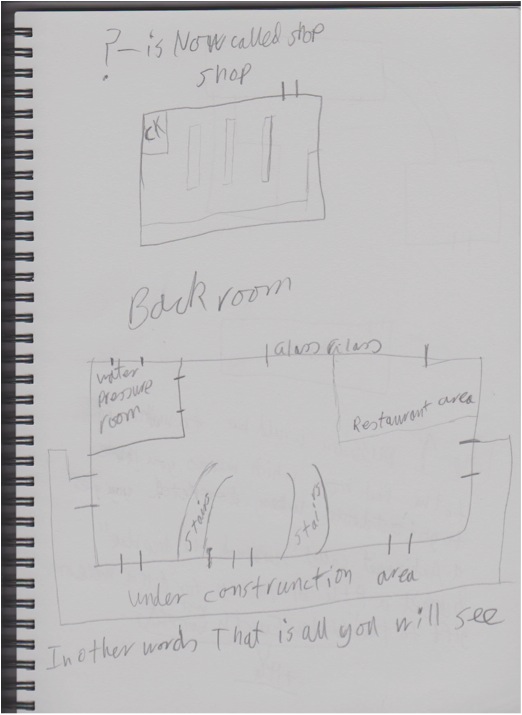 ?- is Now called shop
shop
CK
Back room
Glass Glass
water
pressure
room
Restaurant area
Stairs
Stairs
under construnction area
In other words That is all you will see